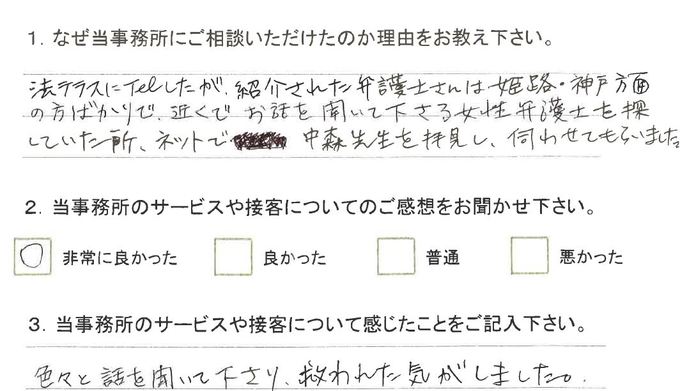 1. なぜ当事務所にご相談いただけたのか理由をお教え下さい。
法テラスにTelしたが、紹介された弁護士さんは姫路・神戸方面
の方ばかりで、近くでお話を聞いて下さる女性弁護士を探
していた所、ネットで 中森先生を拝見し、伺わせてもらいました
2. 当事務所のサービスや接客についてのご感想をお聞かせ下さい。
○ 非常に良かった 良かった 普通 悪かった
3. 当事務所のサービスや接客について感じたことをご記入下さい。
色々と話を聞いて下さり、救われた気がしました。